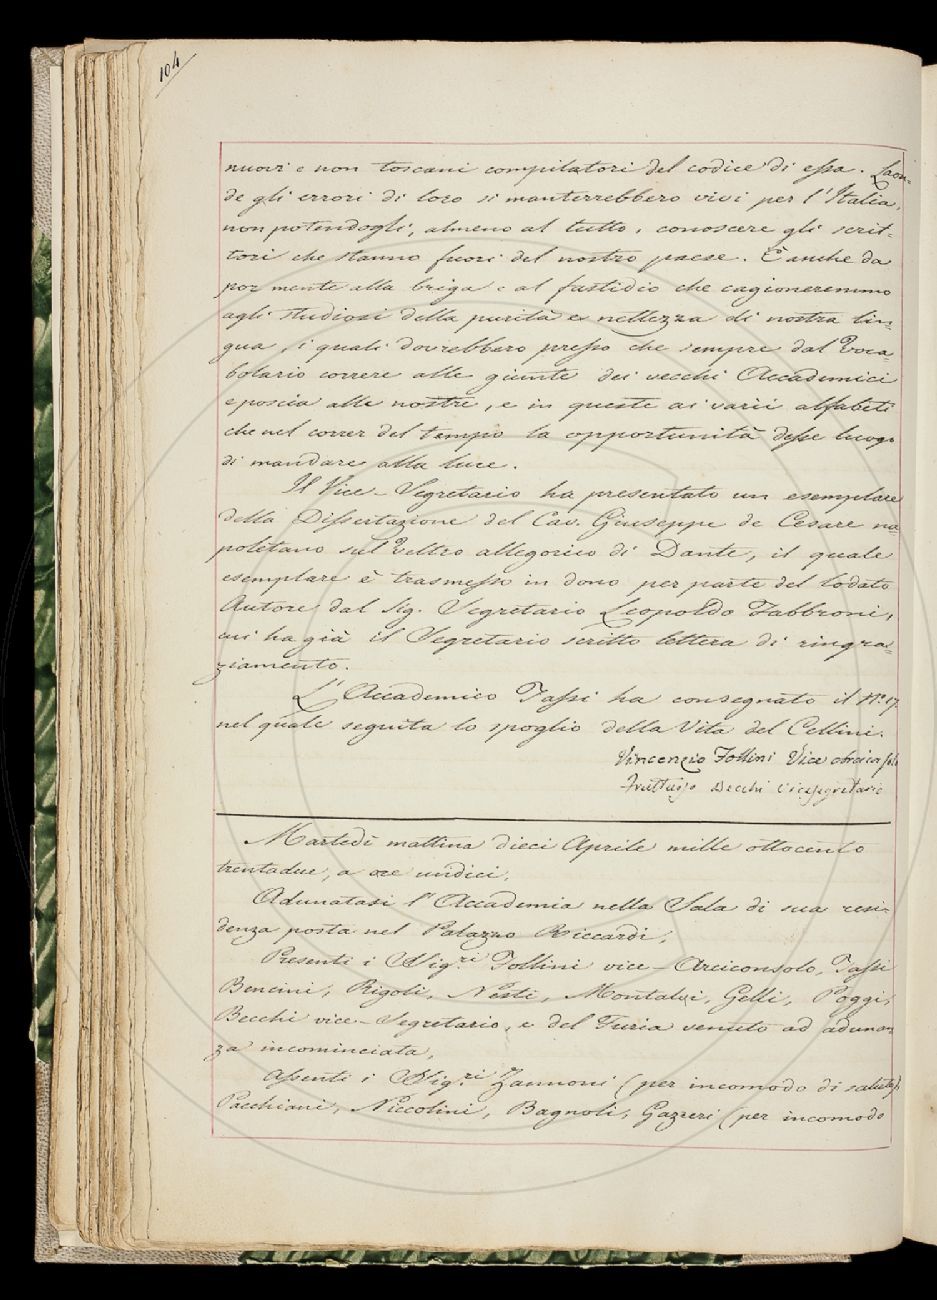 104
nuovi e non toscani compilatori del codice di essa. Laon-
de gli errori di loro si manterrebbero vivi per l'Italia,
non potendogli, almeno al tutto, conoscere gli scrit-
tori che stanno fuori del nostro paese. È anche da
por mente alla briga e al fastidio che cagioneremmo
agli studiosi della purità e nettezza di nostra lin-
gua, i quali dovrebbero presso che sempre dal Voca-
bolario correre alle giunte dei vecchi Accademici
e poscia alle nostre, e in queste ai varii alfabeti
che nel correr del tempo la opportunità desse luogo
di mandare alla luce.
Il Vice-Segretario ha presentato un esemplare
della Dissertazione del Cav. Giuseppe de Cesare na-
poletano sul Veltro allegorico di Dante, il quale
esemplare è trasmesso in dono per parte del lodato
Autore dal Sig. Segretario Leopoldo Fabbroni,
cui ha già il Segretario scritto lettera di ringra-
ziamento.
L'Accademico Tassi ha consegnato il N.° 17.
nel quale seguita lo spoglio della Vita del Cellini.
Vincenzio Follini Vice
Fruttuoso Becchi Vicesegretario
Martedì mattina dieci Aprile mille ottocento
trentadue, a ore undici.
Adunatasi l'Accademia nella Sala di sua resi-
denza posta nel Palazzo Riccardi,
Presenti i Sig.ri Follini vice-Arciconsolo, Tassi
Bencini, Rigoli, Nesti, Montalvi, Gelli, Poggi,
Becchi vice-Segretario, e del Furia venuto ad adunan-
za incominciata,
Assenti i Sig.ri Zannoni (per incomodo di salute),
Pacchiani, Niccolini, Bagnoli, Gazzeri (per incomodo